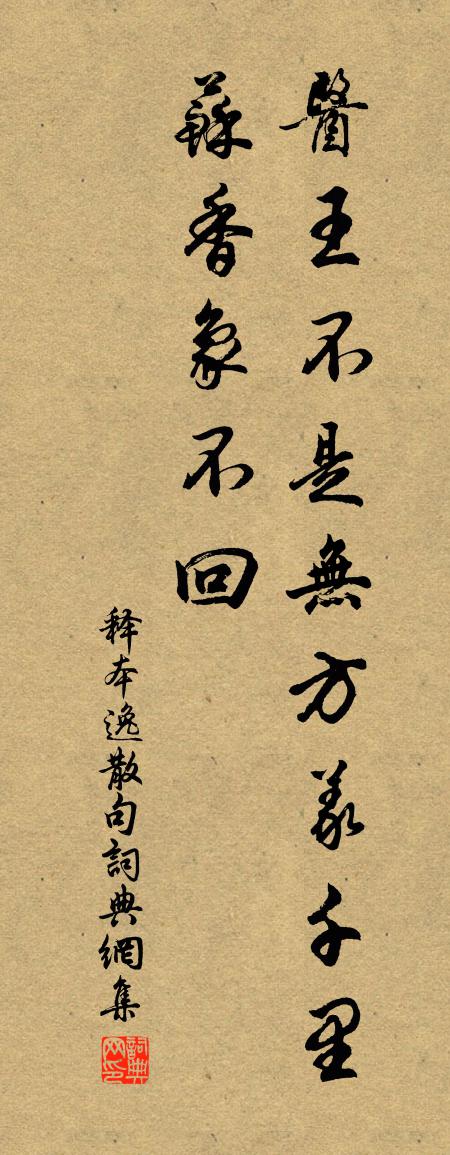 醫王不是無方義千里
蘇香象不回
释本逸散句詞典網集
詞典网印